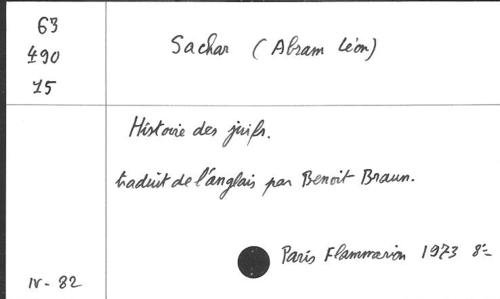 63
490
15
Sachar (Abram Léon)
Histoire des juifs.
traduit de l'anglais par Benoit Braun.
Paris Flammarion 1973 8º
IV - 82